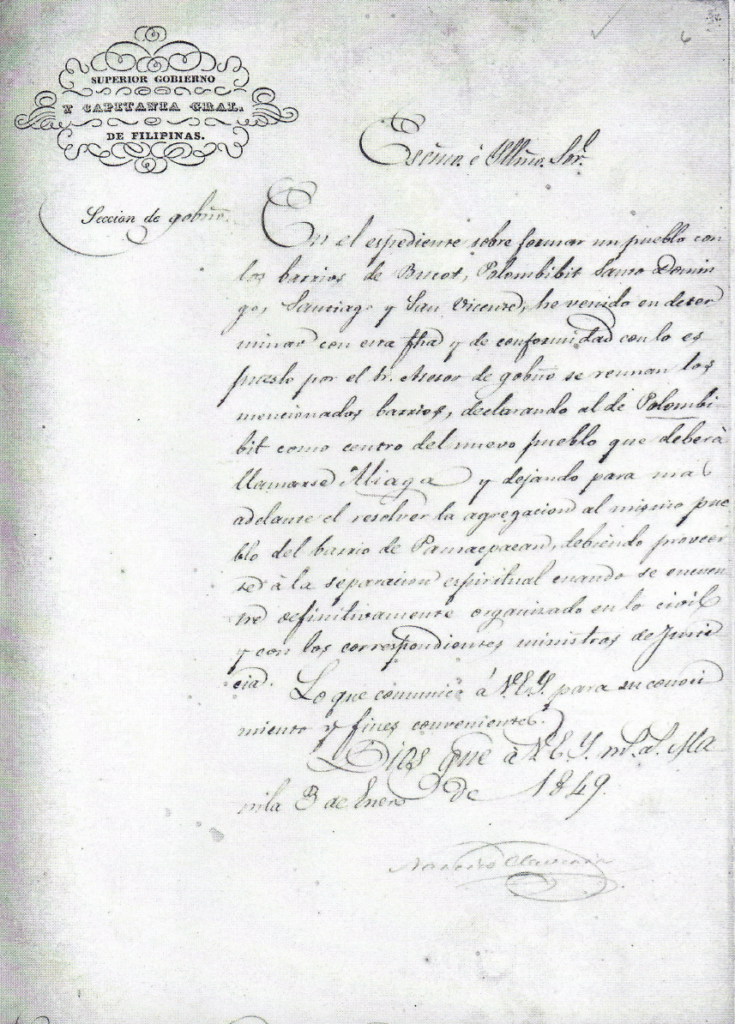 6
SUPERIOR GOBIERNO
Y CAPITANIA GRAL.
DE FILIPINAS.
Escmo. é Yllmo. Sor.
Seccion de gobno.
En el espediente sobre formar un pueblo con
los barrios de Bucot, Polombibit Santo Domin
go, Santiago y San Vicente, he venido en deter
minar con esta fha y de conformidad con lo es
puesto por el Sr. Asesor de gobno se reunan los
mencionados barrios, declarando al de Polombi
bit como centro del nuevo pueblo que deberá
llamarse Aliaga y dejando para mas
adelante el resolver la agregacion al mismo pue
blo del barrio de debiendo proveer
se á la separacion espiritual cuando se encuen
tre definitivamente organizado en lo civil
y con los correspondientes ministros de Justi
cia. Lo que comunico á V.E.Y. para su conoci
miento y fines convenientes.
Dios gue á V.E.Y. ms. as. Ma
nila 3 de Enero de 1849.
Narciso Claveria